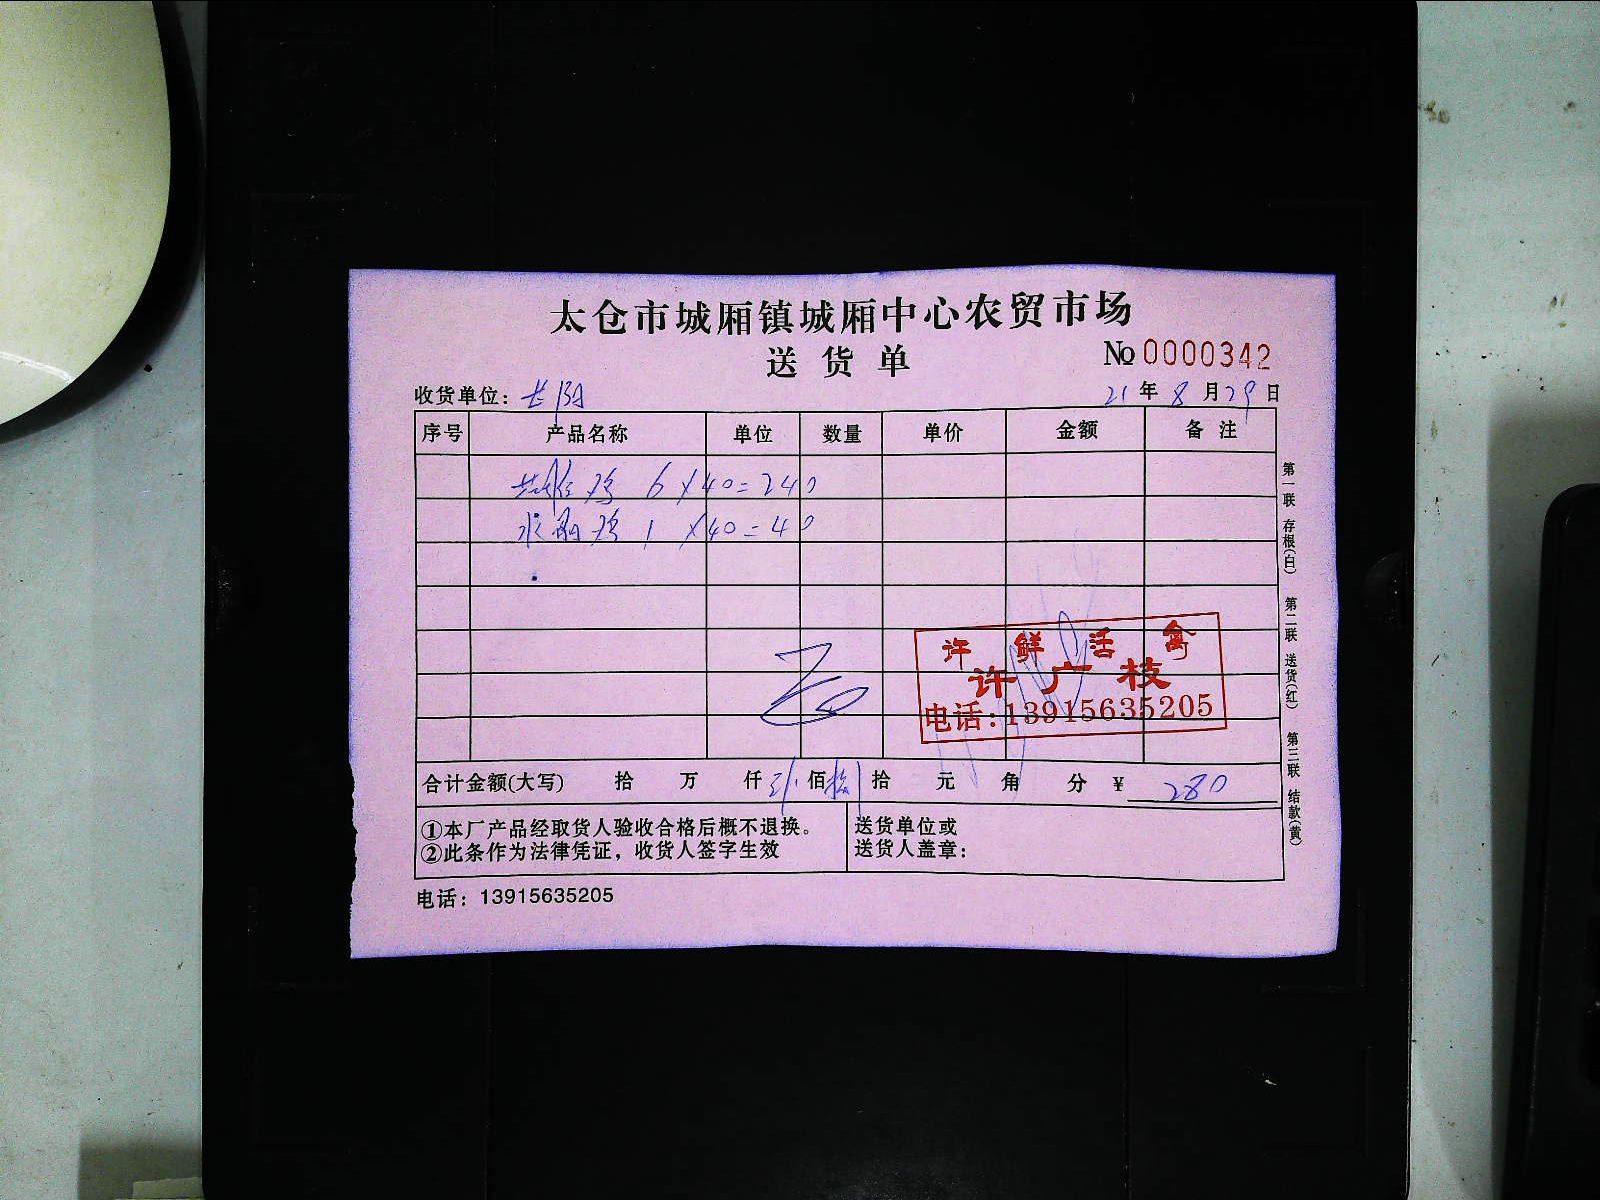 太仓市城厢镇城厢中心农贸市场
送货单
No 0000342
收货单位：
21年8月29日
序号 产品名称 单位 数量 单价 金额 备注
鸡 6×40=240
鸡 1×40=40
许鲜活禽
许广枝
电话:13915635205
合计金额(大写) 拾 万 仟 佰 拾 元 角 分 ¥ 280
①本厂产品经取货人验收合格后概不退换。
②此条作为法律凭证，收货人签字生效
送货单位或
送货人盖章：
电话：13915635205
第一联 存根(白) 第二联 送货(红) 第三联 结款(黄)